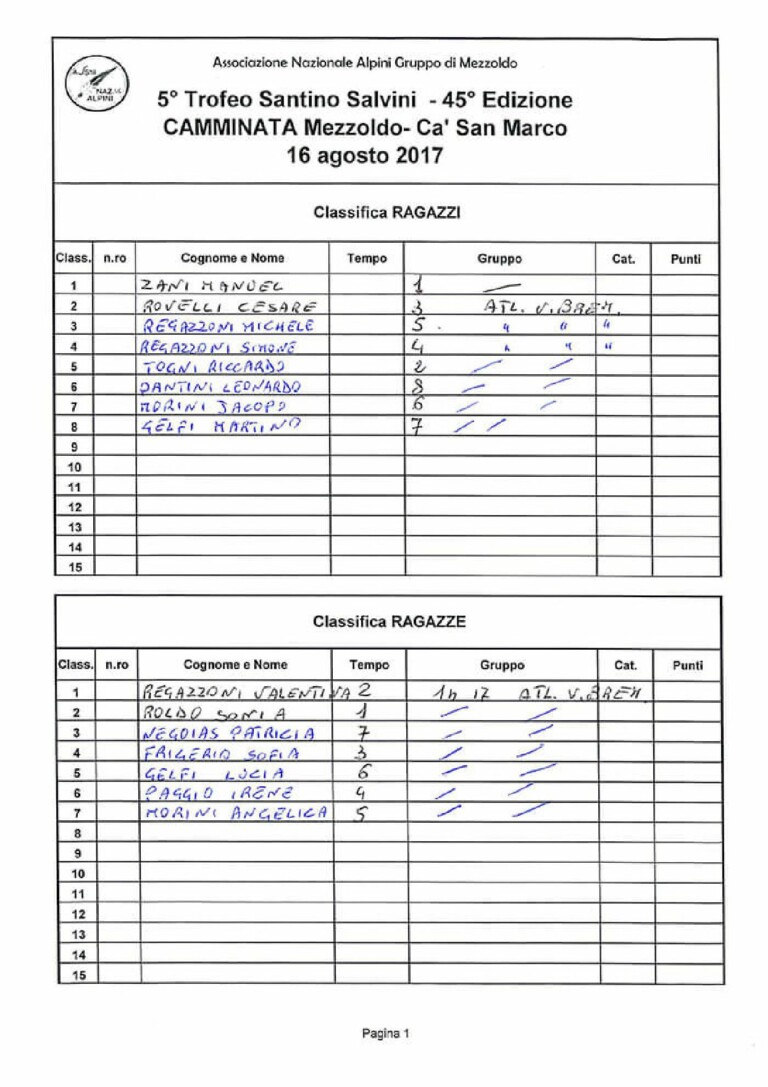 Associazione Nazionale Alpini Gruppo di Mezzoldo
NAZ.LE
ALPINI
5° Trofeo Santino Salvini - 45° Edizione
CAMMINATA Mezzoldo- Ca' San Marco
16 agosto 2017
Classifica RAGAZZI
Class. n.ro Cognome e Nome Tempo Gruppo Cat. Punti
1 ZANI MANUEL 1 —
2 ROVELLI CESARE 3 ATL. V. BREM.
3 REGAZZONI MICHELE 5 . " " "
4 REGAZZONI SIMONE 4 " " "
5 TOGNI RICCARDO 2 / /
6 LEONARDO 8 / /
7 MORINI JACOPO 6 / /
8 GELFI MARTINO 7 / /
9
10
11
12
13
14
15
Classifica RAGAZZE
Class. n.ro Cognome e Nome Tempo Gruppo Cat. Punti
1 REGAZZONI VALENTINA 2 1h 17 ATL. V. BREM.
2 ROLDO SONIA 1 / /
3 NEGOIAS PATRICIA 7 / /
4 FRIGERIO SOFIA 3 / /
5 GELFI LUCIA 6 / /
6 PAGGIO IRENE 4 / /
7 MORINI ANGELICA 5 / /
8
9
10
11
12
13
14
15
Pagina 1